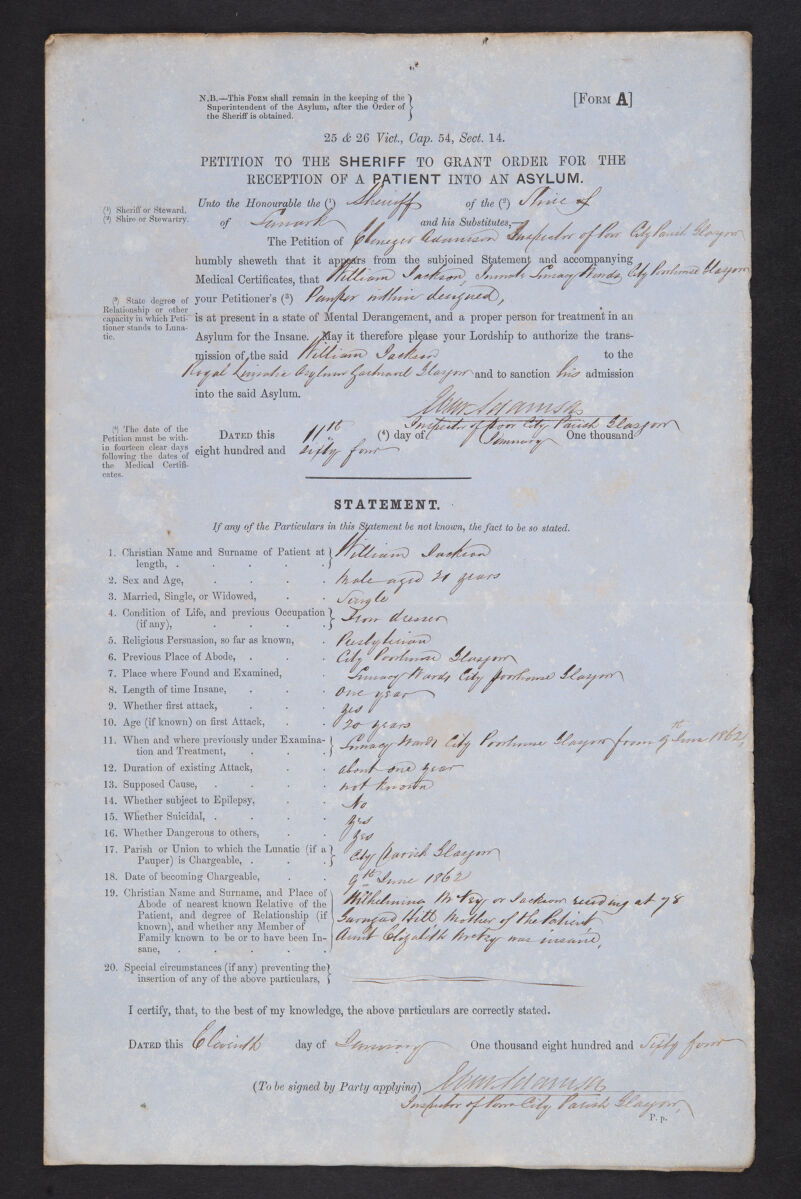 N.B.—This Form shall remain in the keeping of the
Superintendent of the Asylum, after the Order of
the Sheriff is obtained.
[Form A]
25 & 26 Vict., Cap. 54, Sect. 14.
PETITION TO THE SHERIFF TO GRANT ORDER FOR THE
RECEPTION OF A PATIENT INTO AN ASYLUM.
(¹) Sheriff or Steward.
(²) Shire or Stewartry.
Unto the Honourable the (¹) Sheriff of the (²) Shire of
of Lanark and his Substitutes,—
The Petition of Ebenezer Adamson Inspector of Poor City Parish Glasgow
humbly sheweth that it appears from the subjoined Statement and accompanying
Medical Certificates, that William Jackson, Inmate Lunacy Wards, City Poorhouse Glasgow
(³) State degree of
Relationship or other
capacity in which Peti-
tioner stands to Luna-
tic.
your Petitioner's (³) Pauper within designed,
is at present in a state of Mental Derangement, and a proper person for treatment in an
Asylum for the Insane. May it therefore please your Lordship to authorize the trans-
mission of the said William Jackson to the
Royal Lunatic Asylum Gartnavel Glasgow and to sanction his admission
into the said Asylum.
Ebenr Adamson
Inspector of Poor City Parish Glasgow
(⁴) The date of the
Petition must be with-
in fourteen clear days
following the dates of
the Medical Certifi-
cates.
Dated this 11th (⁴) day of January One thousand
eight hundred and sixty four
STATEMENT.
If any of the Particulars in this Statement be not known, the fact to be so stated.
1. Christian Name and Surname of Patient at
length, . . . . . William Jackson
2. Sex and Age, . . . . Male aged 21 years
3. Married, Single, or Widowed, . . Single
4. Condition of Life, and previous Occupation
(if any), . . . . Iron dresser
5. Religious Persuasion, so far as known, . Presbyterian
6. Previous Place of Abode, . . . City Poorhouse Glasgow
7. Place where Found and Examined, . Lunacy Wards City Poorhouse Glasgow
8. Length of time Insane, . . . One year
9. Whether first attack, . . . yes
10. Age (if known) on first Attack, . . 20 years
11. When and where previously under Examina-
tion and Treatment, . . . Lunacy Wards City Poorhouse Glasgow from 9th June 1862,
12. Duration of existing Attack, . . about one year
13. Supposed Cause, . . . . not known
14. Whether subject to Epilepsy, . . No
15. Whether Suicidal, . . . . yes
16. Whether Dangerous to others, . . yes
17. Parish or Union to which the Lunatic (if a
Pauper) is Chargeable, . . . City Parish Glasgow
18. Date of becoming Chargeable, . . 9th June 1862
19. Christian Name and Surname, and Place of
Abode of nearest known Relative of the
Patient, and degree of Relationship (if
known), and whether any Member of
Family known to be or to have been In-
sane, . . . . .
Wilhelmina or Jackson residing at 78
Garngad Hill Mother of the Patient
Aunt Elizabeth was insane,
20. Special circumstances (if any) preventing the
insertion of any of the above particulars,
I certify, that, to the best of my knowledge, the above particulars are correctly stated.
Dated this Eleventh day of January One thousand eight hundred and sixty four
(To be signed by Party applying) Ebenr Adamson
Inspector of Poor City Parish Glasgow,
P. p.